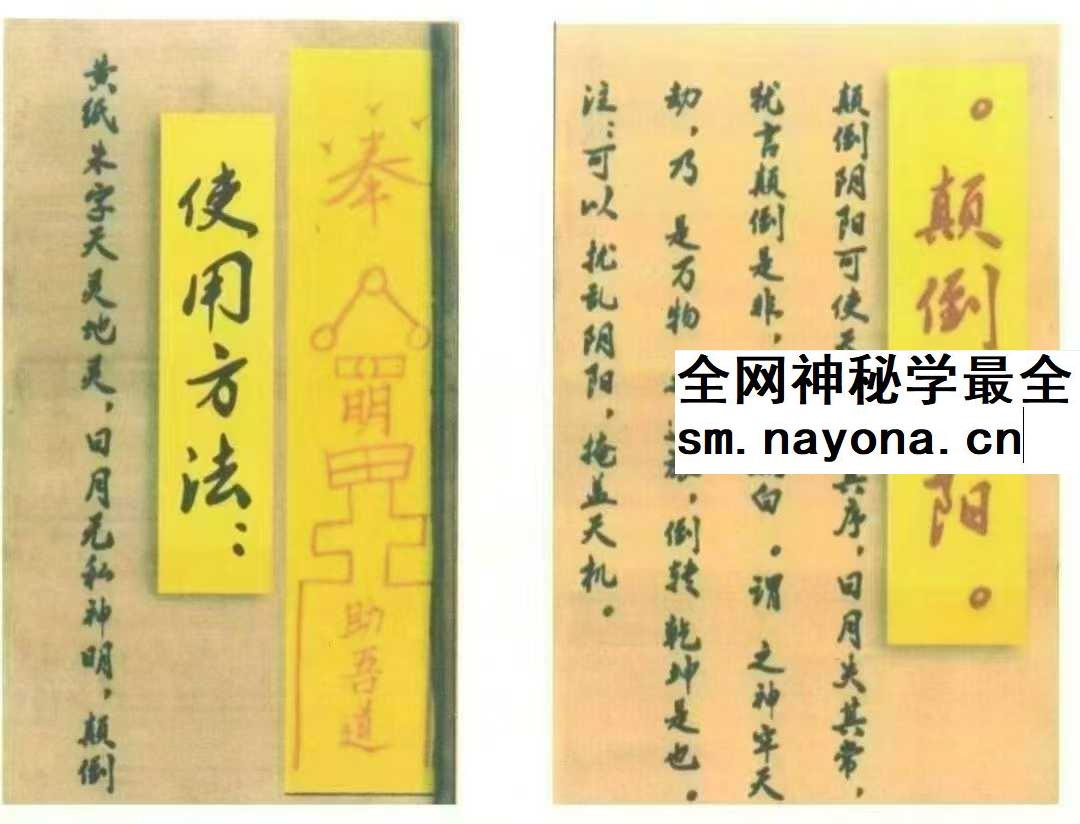 。颠倒
阳。
颠倒阴阳可使天
其序,日月失其常,
犹言颠倒是非,
白。谓之神牢天
劫,乃是万物
,倒转乾坤是也。
注:可以扰乱阴阳,掩盖天机。
全网神秘学最全
sm.nayona.cn
奉
明
甲
助吾道
使用方法:
黄纸朱字天灵地灵,日月无私神明,颠倒